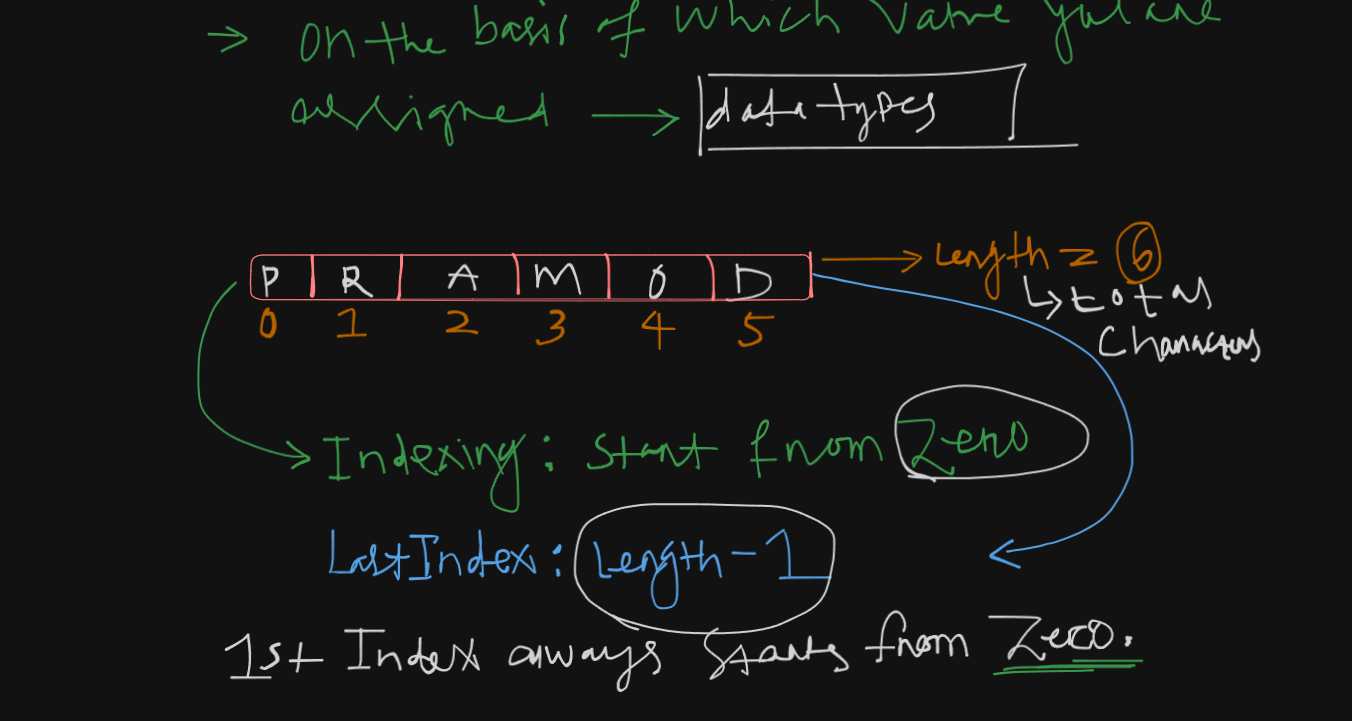 → On the basis of which value you are
assigned → data types
P R A M O D → Length = 6
0 1 2 3 4 5 ↳ total
characters
→ Indexing: start from Zero
LastIndex: Length-1
1st Index aways starts from Zero.